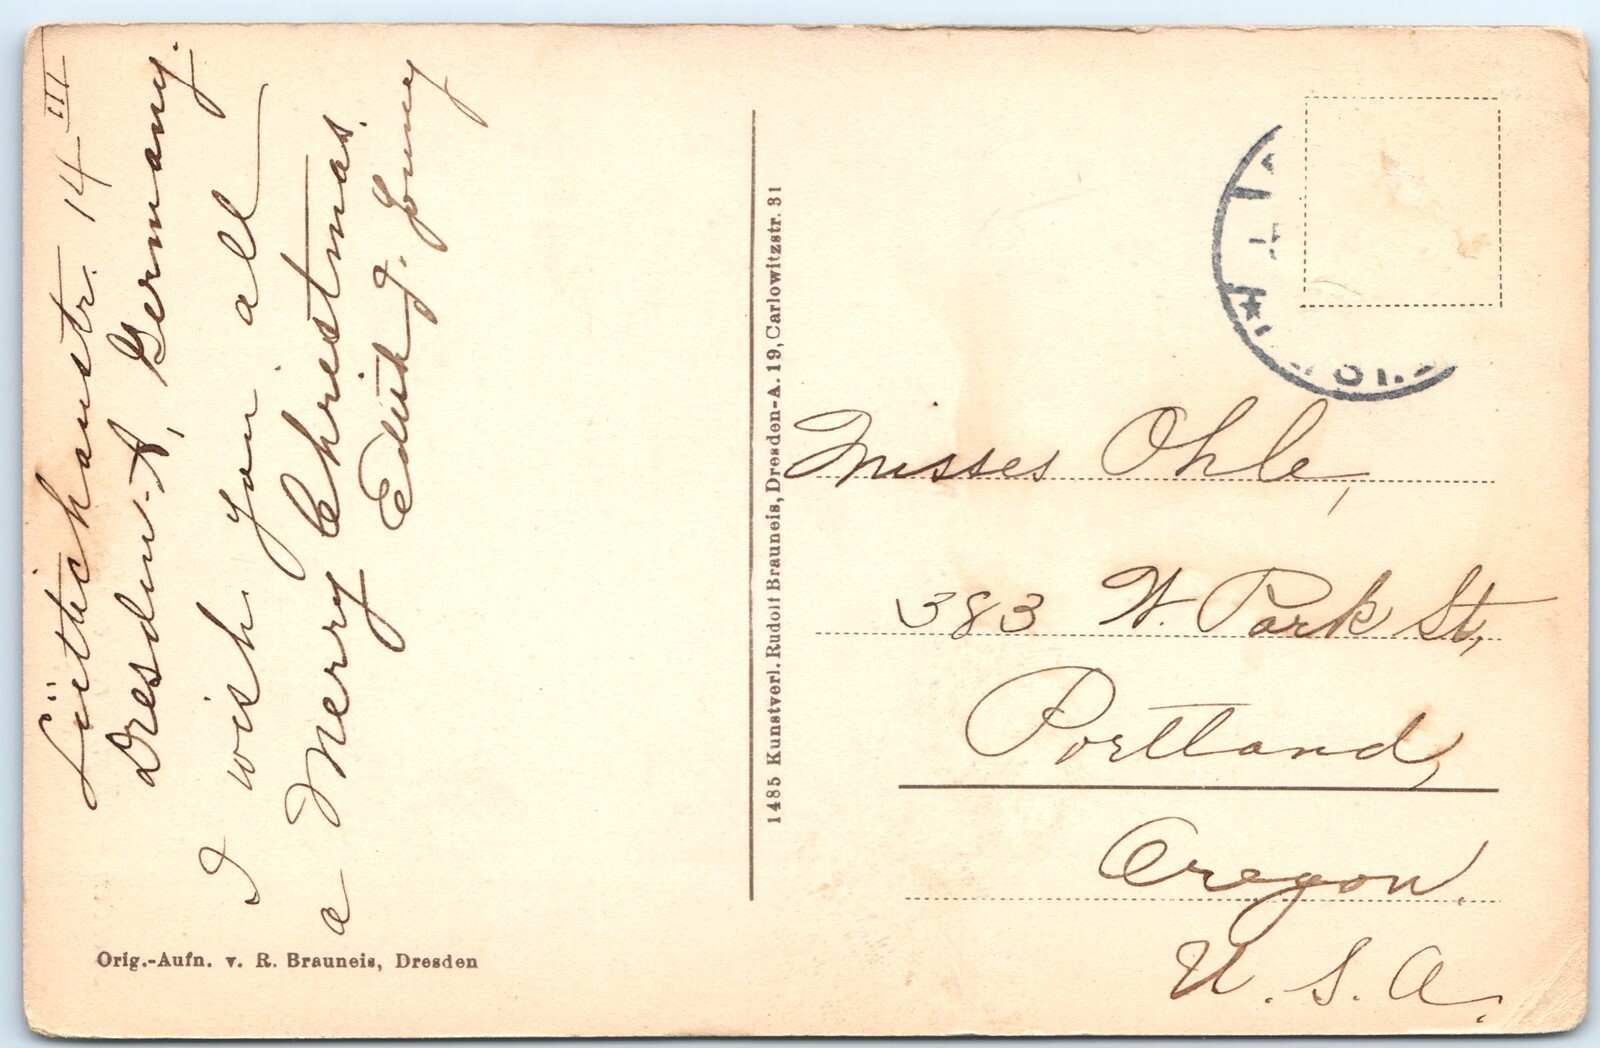 Lüttichaustr. 14 III
Dresden-A, Germany.
I wish you all
a Merry Christmas.
Edith J.
Orig.-Aufn. v. R. Brauneis, Dresden
1485 Kunstverl. Rudolf Brauneis, Dresden-A. 19, Carlowitzstr. 31
Misses Ohle,
383 W. Park St,
Portland,
Oregon.
U. S. A.